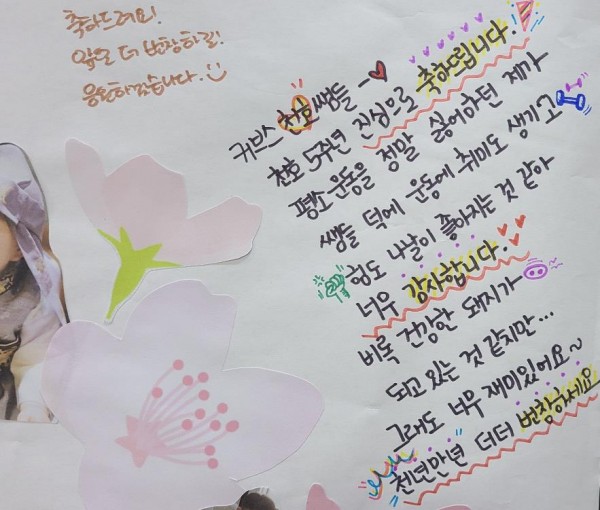 축하드려요!
앞으로 더 번창하길!
응원하겠습니다.
커브스 천호쌤들
천호 5주년 진심으로 축하드립니다.
평소 운동을 정말 싫어하던 제가
쌤들 덕에 운동에 취미도 생기고
힘도 나날이 좋아지는 것 같아
너무 감사합니다.
비록 건강한 돼지가
되고 있는 것 같지만...
그래도 너무 재미있어요~
천년만년 더더 번창하세요